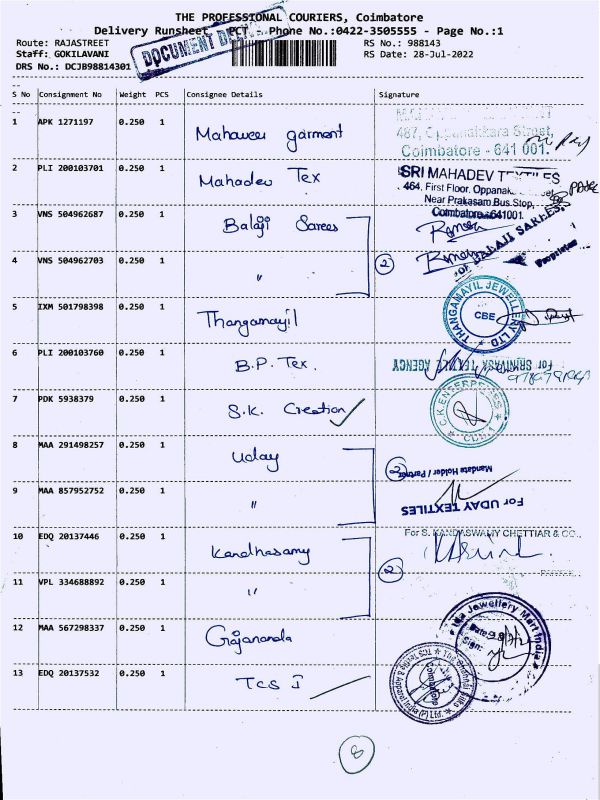 THE PROFESSIONAL COURIERS, Coimbatore
Delivery Runsheet, PCT - Phone No.:0422-3505555 - Page No.:1
Route: RAJASTREET
RS No.: 988143
Staff: GOKILAVANI
RS Date: 28-Jul-2022
DRS No.: DCJB98814301
DOCUMENT
S No Consignment No Weight PCS Consignee Details Signature
1 APK 1271197 0.250 1 Mahaveer garment
487,
Street,
Coimbatore - 641 001.
2 PLI 200103701 0.250 1 Mahadev Tex
SRI MAHADEV TEXTILES
464, First Floor, Oppanak
Near Prakasam Bus Stop,
Coimbatore-641001
3 VNS 504962687 0.250 1 Balaji Sarees
BALAJI SAREES
4 VNS 504962703 0.250 1 "
2
Proprietor
5 IXM 501798398 0.250 1 Thangamayil
THANGAMAYIL JEWELLERY LTD
CBE
6 PLI 200103760 0.250 1 B.P. Tex.
For SRINIVASA TEXTILE AGENCY
7 PDK 5938379 0.250 1 S.K. Creation
C.K. ENTERPRISES
8 MAA 291498257 0.250 1 Uday
2
Mandate Holder / Partner
9 MAA 857952752 0.250 1 "
For UDAY TEXTILES
10 EDQ 20137446 0.250 1 Kandhasamy
For S. KANDASWAMY CHETTIAR & CO.,
11 VPL 334688892 0.250 1 "
2
12 MAA 567298337 0.250 1 Gajananda
Jewellery Mart India
Date:
Sign:
13 EDQ 20137532 0.250 1 TCS I
TCS Textile & Apparel
Coimbatore
8